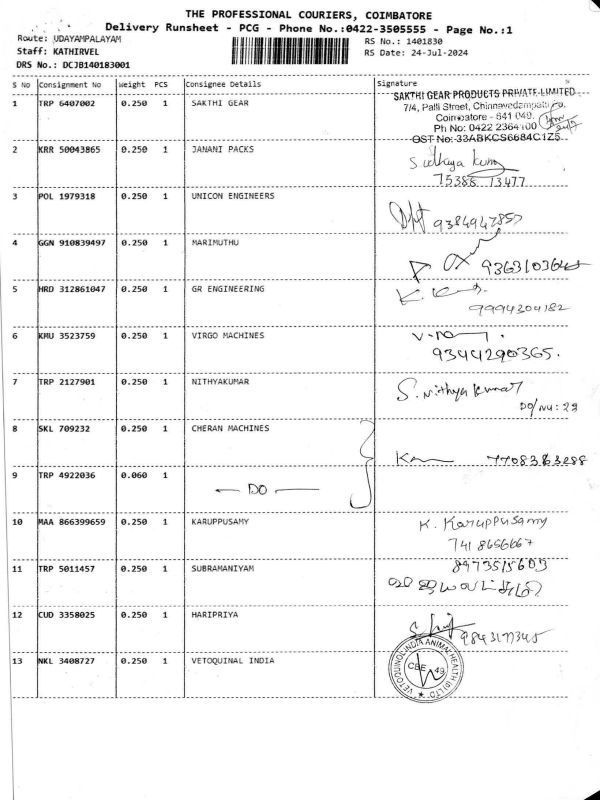 THE PROFESSIONAL COURIERS, COIMBATORE
Delivery Runsheet - PCG - Phone No.:0422-3505555 - Page No.:1
Route: UDAYAMPALAYAM
Staff: KATHIRVEL
DRS No.: DCJB140183001
RS No.: 1401830
RS Date: 24-Jul-2024
S No Consignment No Weight PCS Consignee Details Signature
1 TRP 6407002 0.250 1 SAKTHI GEAR
SAKTHI GEAR PRODUCTS PRIVATE LIMITED
7/4, Palli Street, Chinnavedampatti
Coimbatore - 641 049.
Ph No: 0422 2364100
GST No: 33ABKCS6684C1Z5
2 KRR 50043865 0.250 1 JANANI PACKS
75385 73477
3 POL 1979318 0.250 1 UNICON ENGINEERS
9384947857
4 GGN 910839497 0.250 1 MARIMUTHU
5 HRD 312861047 0.250 1 GR ENGINEERING
9994304182
6 KMU 3523759 0.250 1 VIRGO MACHINES
9344290365.
7 TRP 2127901 0.250 1 NITHYAKUMAR
S. Nithya kumar
8 SKL 709232 0.250 1 CHERAN MACHINES
7708363288
9 TRP 4922036 0.060 1
DO
10 MAA 866399659 0.250 1 KARUPPUSAMY
K. Karuppusamy
741 8656667
11 TRP 5011457 0.250 1 SUBRAMANIYAM
12 CUD 3358025 0.250 1 HARIPRIYA
9843177345
13 NKL 3408727 0.250 1 VETOQUINAL INDIA
VETOQUINOL INDIA ANIMAL HEALTH (P) LTD
CBE 49